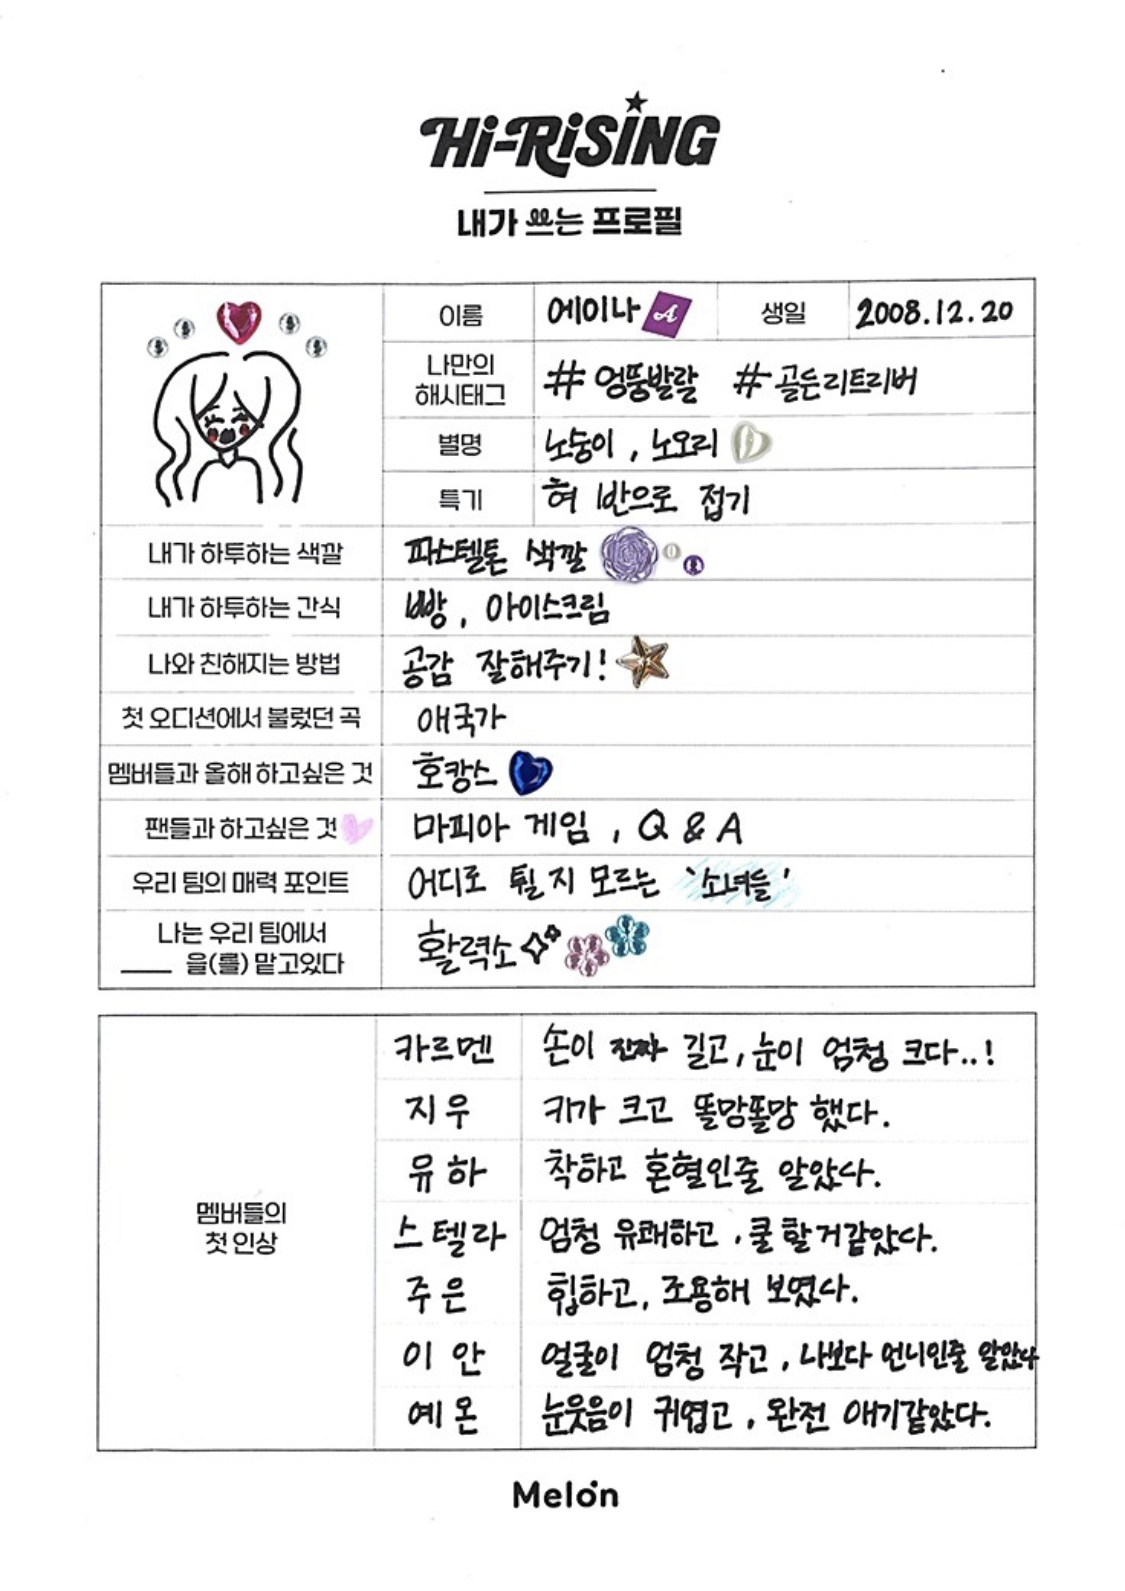 Hi-RiSiNG
내가 쓰는 프로필
이름 에이나 A 생일 2008.12.20
나만의
해시태그 #엉뚱발랄 #골든리트리버
별명 노숭이, 노오리
특기 혀 반으로 접기
내가 하투하는 색깔 파스텔톤 색깔
내가 하투하는 간식 빵, 아이스크림
나와 친해지는 방법 공감 잘해주기!
첫 오디션에서 불렀던 곡 애국가
멤버들과 올해 하고싶은 것 호캉스
팬들과 하고싶은 것 마피아 게임, Q & A
우리 팀의 매력 포인트 어디로 튈지 모르는 '소녀들'
나는 우리 팀에서
____ 을(를) 맡고있다 활력소
멤버들의
첫 인상
카르멘 손이 진짜 길고, 눈이 엄청 크다..!
지우 키가 크고 똘망똘망 했다.
유하 착하고 혼혈인줄 알았다.
스텔라 엄청 유쾌하고, 쿨할거같았다.
주은 힙하고, 조용해 보였다.
이안 얼굴이 엄청 작고, 나보다 언니인줄 알았다
예온 눈웃음이 귀엽고, 완전 애기같았다.
Melon